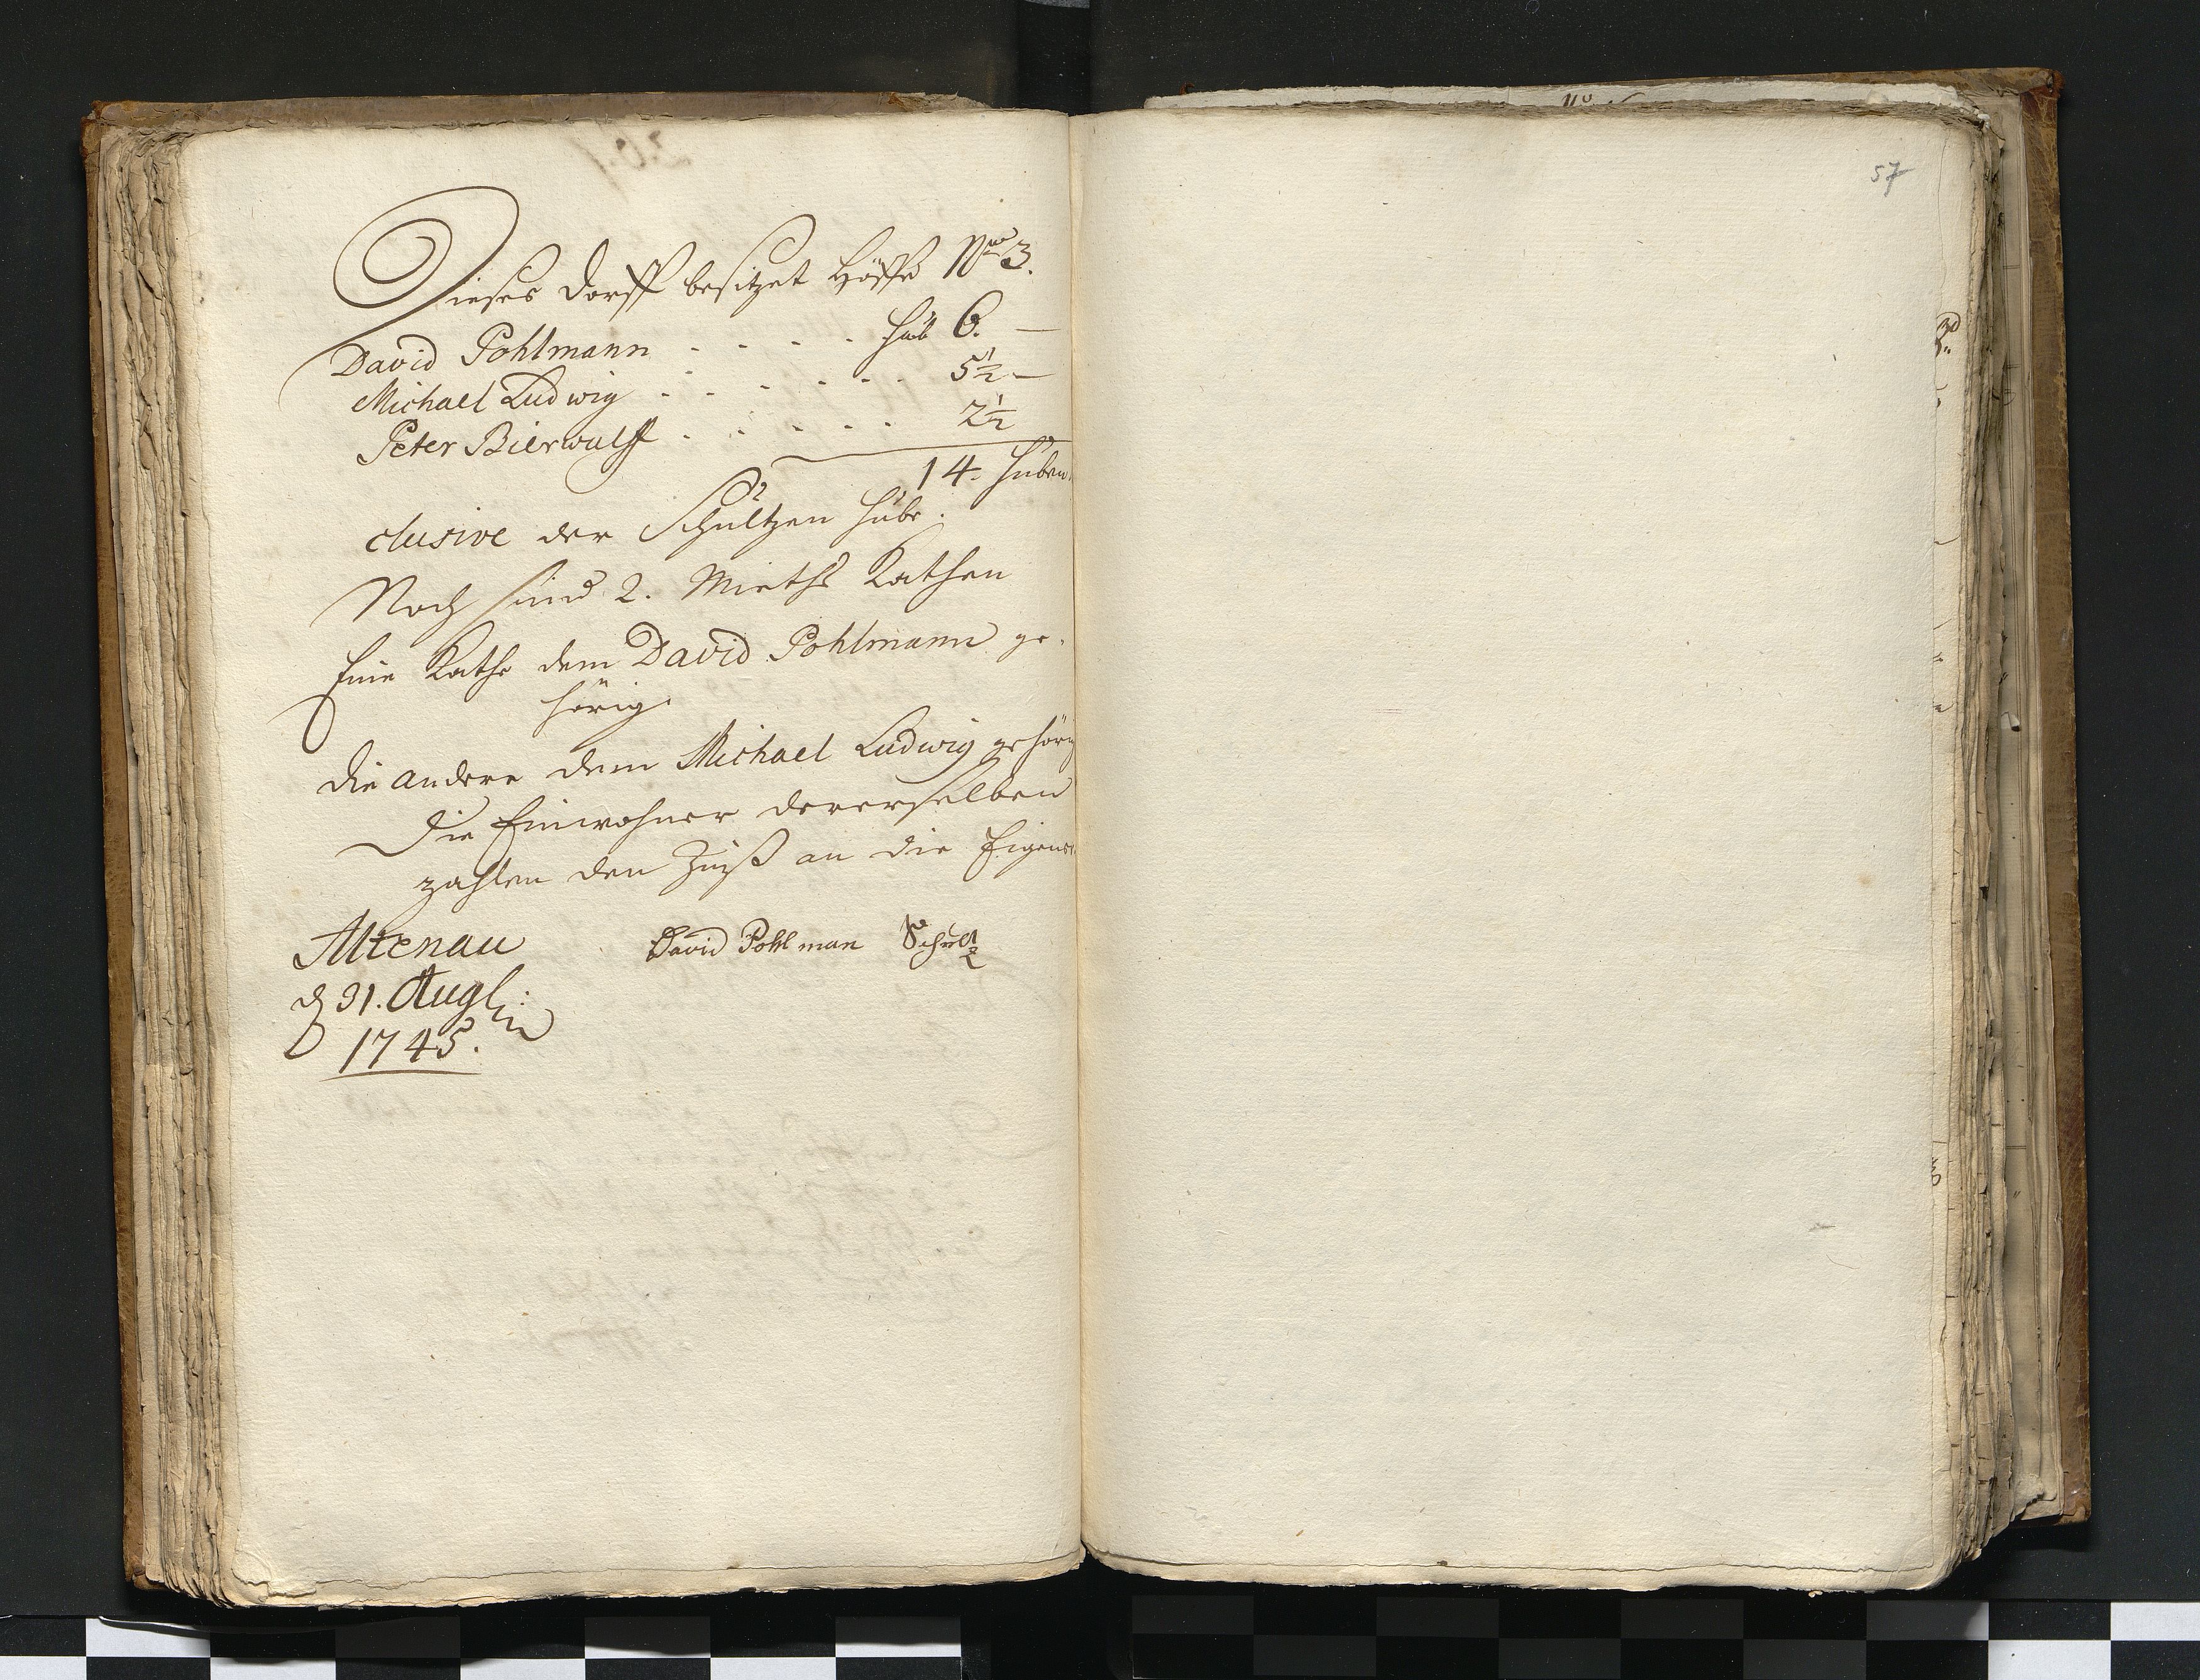 Dieses Dorff besitzet Höffe Nro 3.
David Pohlmann . . . . . Hüb 6. —
Michael Ludwig . . . . . . 5½ —
Peter Bierwulff . . . . . 2½
14. Huben
clusive der Schultzen Hube.
Noch sind 2. Mieths Kathen
Eine Kathe dem David Pohlmann ge-
hörig.
die andere dem Michael Ludwig gehörig
Die Einwohner dererselben
zahlen den Zinß an die Eigen
Altenau David Pohlman Schultz
d 31. Augl:
1745.
57